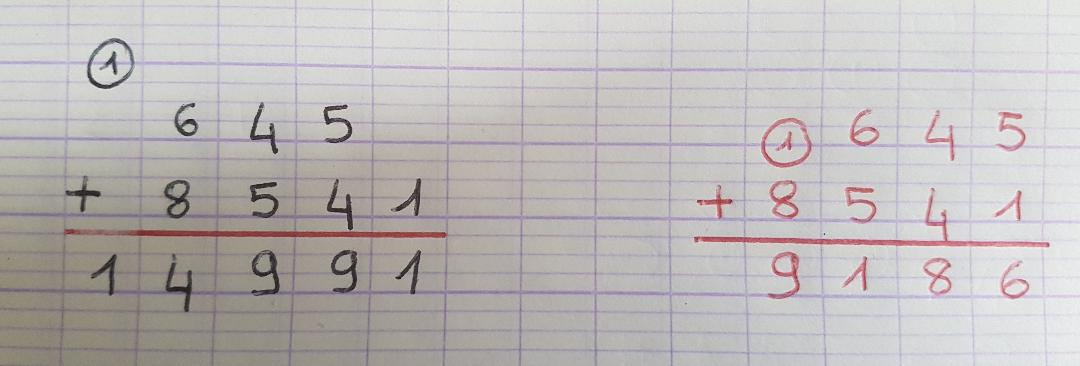 ①
6 4 5
+ 8 5 4 1
1 4 9 9 1
① 6 4 5
+ 8 5 4 1
9 1 8 6